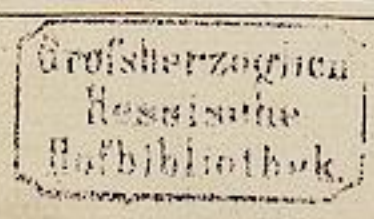 Grofsherzoglich
Hessische
Hofbibliothek.